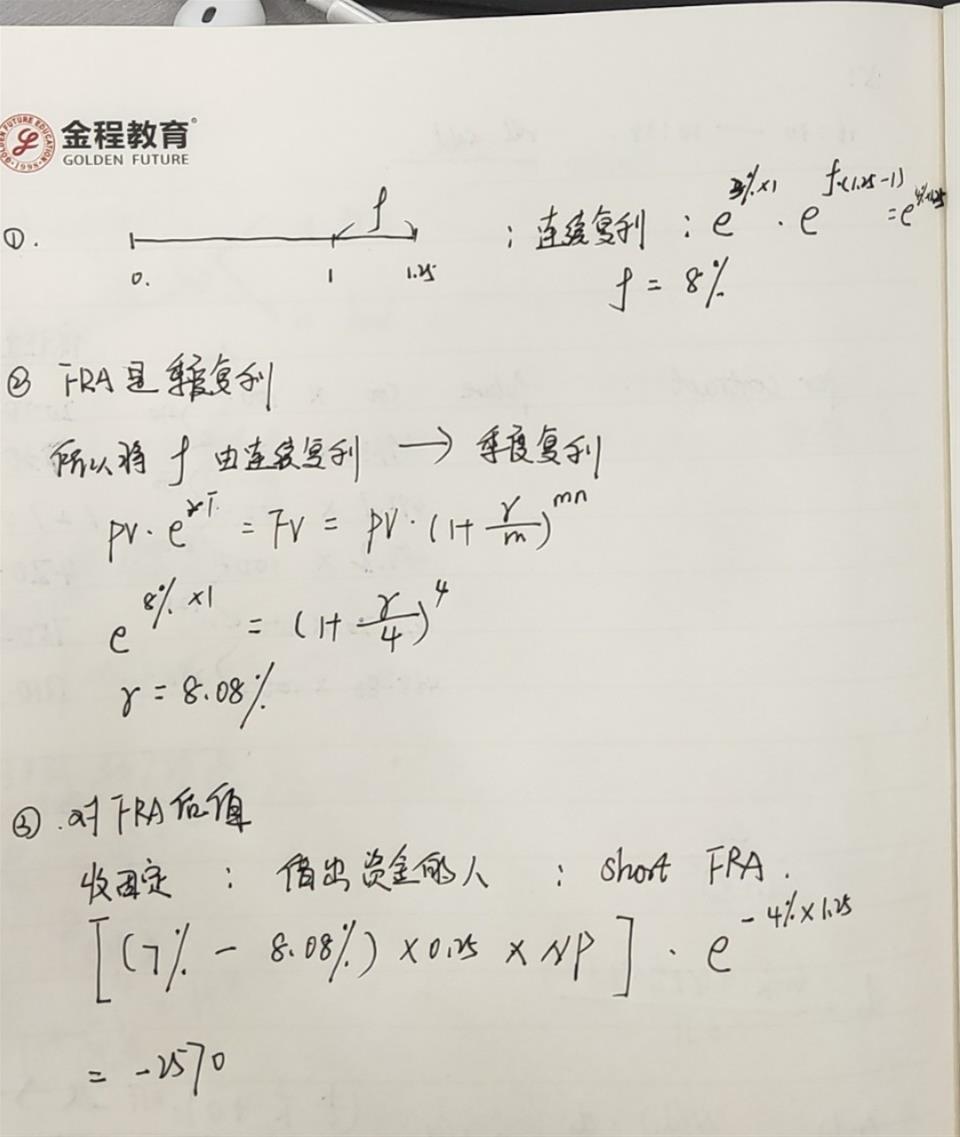 金程教育
GOLDEN FUTURE
GOLDEN FUTURE EDUCATION 1998
f
①. 0. 1 1.25 ; 连续复利 : e^{3%×1} · e^{f·(1.25-1)} = e^{4%×1.25}
f = 8%
② FRA是季度复利
所以将 f 由连续复利 → 季度复利
PV · e^{rT} = FV = PV · (1+ r/m)^{mn}
e^{8% ×1} = (1+ r/4)^4
r = 8.08%
③ .对FRA估值
收固定 : 借出资金的人 : short FRA.
[(7% - 8.08%) ×0.25 × NP] · e^{-4%×1.25}
= -2570